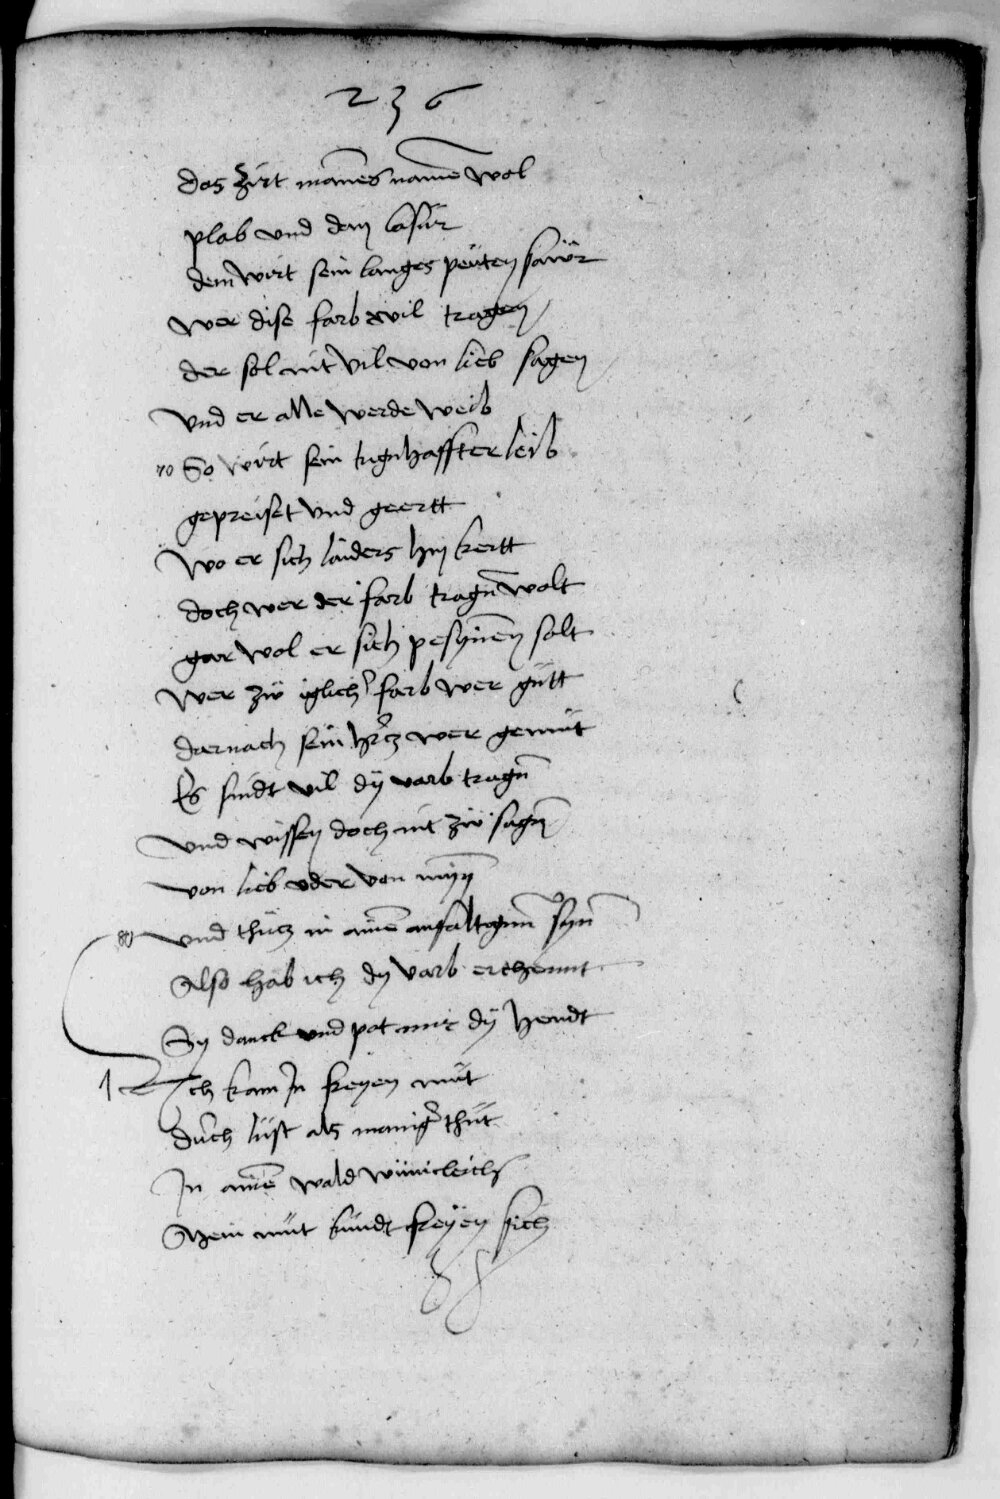 236
das zirt mannes namē wol
plab und dein lasür
dem wirt sein langes peüten sawr
wer dise farb wil tragen
der sol nit vil von lieb sagen
Vnd er alle werde weib
70 So wirt sein tugnhaffter leib
gepreiset Vnd geertt
Wo er sich landers hin kertt
doch wer der farb tragn̄ wolt
gar wol er sich pesynnen solt
Wer zü iglicher farb wer gütt
darnach sein hercz wer gemüt
Es sindt vil dÿ varb tragn̄
Vnd wissen doch nit zü sagn̄
von lieb oder von mynn
80 Vnd thücz in ainē anfaltogm̄ syn̄
Also hab ich dy varb erchennt
Sy danck und pot mir dÿ hendt
1 Ich kam In freyen müt
durch lüst als maniger thüt
In ainē wald wünicleich
Mein müt kündt freÿen sich